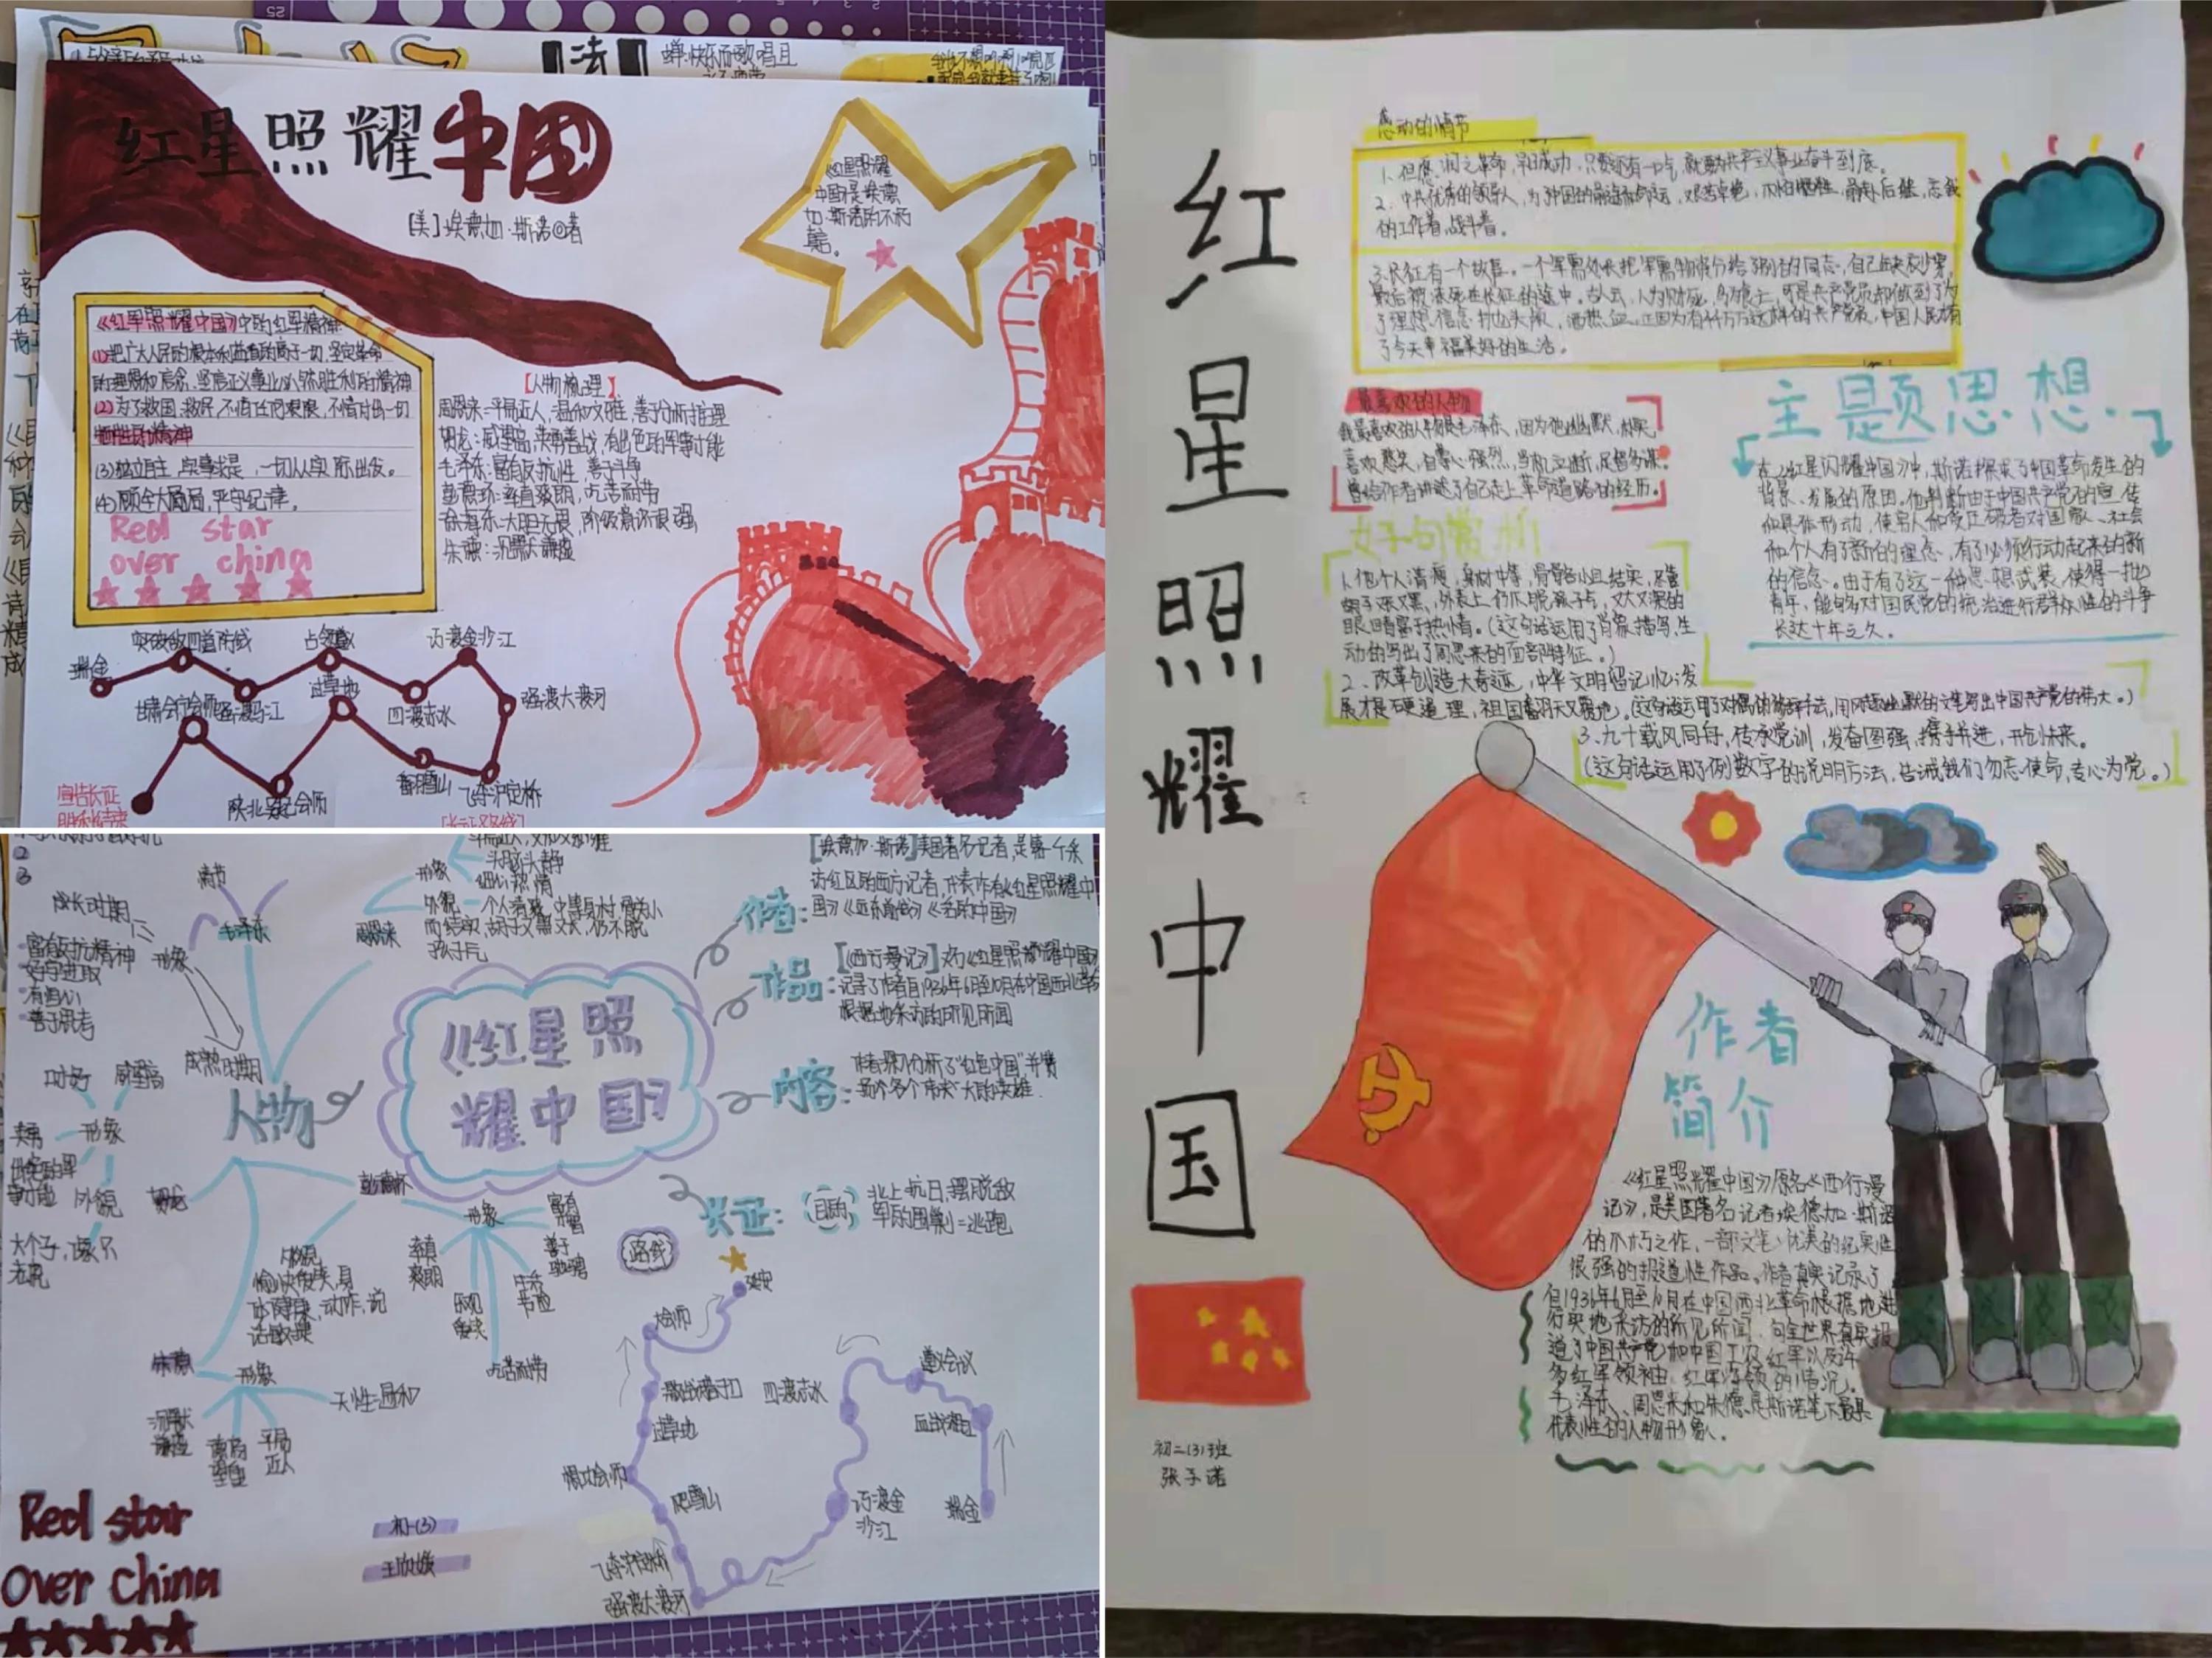 红星照耀中国
[美]埃德加·斯诺◎著
红星照耀
中国是埃德
加·斯诺的不朽
《红军照耀中国》中的红军精神
(1)把广大人民的根本利益看的高于一切,坚定革命
的理想和信念,坚信正义事业必然胜利的精神
(2)为了救国救民,不怕任何艰险,不惜付出一切
牺牲的精神
(3)独立自主,实事求是,一切从实际出发。
(4)顾全大局,严守纪律。
Red star
over china
【人物梳理】
周恩来:平易近人,温和文雅,善于分析推理
贺龙:威望高,英勇善战,有出色的军事才能
毛泽东:富有反抗性,善于斗争
彭德怀:率直爽朗,吃苦耐劳
徐海东:大胆无畏,阶级意识很强
朱德:沉默谦虚
瑞金
突破敌四道防线
占领遵义
巧渡金沙江
强渡大渡河
四渡赤水
强渡乌江
过草地
甘肃会宁会师
陕北吴起会师
翻雪山
飞夺泸定桥
宣告长征
胜利结束
《红星照
耀中国》
作者:
[埃德加·斯诺]美国著名记者,是第一个采
访红区的西方记者,代表作有《红星照耀中
国》
作品:
[《西行漫记》]又为《红星照耀中国》
记录了作者自1936年6月至10月在中国西北革命
根据地采访的所见所闻
内容:
长征:
目的
北上抗日,摆脱敌
军的围剿=逃跑
路线
人物
情节
毛泽东
形象
成长时期
富有反抗精神
好学进取
善于思考
成熟时期
周恩来
形象
头脑冷静
外貌
个人清瘦,中等身材,骨骼小
而结实,胡子又黑又长,仍不脱
孩子气
口才好
威望高
形象
外貌
贺龙
彭德怀
形象
率直
爽朗
乐观
爱笑
生活
节俭
吃苦耐劳
外貌
愉快爱笑,身
体健康,动作,说
话敏捷
朱德
形象
天性温和
沉默
谦虚
平易
近人
延安
会师
过草地
爬雪山
飞夺泸定桥
强渡大渡河
四渡赤水
巧渡金
沙江
遵义会议
血战湘江
瑞金
Red star
Over China
初一(3)
王欣媛
红星照耀中国
感动的情节
1、但愿润之革命早日成功,只要还有一口气,就要为共产主义事业奋斗到底。
2、中共优秀的领导人,为了中国的前途和命运,艰苦卓绝,不怕牺牲,前赴后继,忘我
的工作着,战斗着。
3、长征有一个故事。一个军需处长把军需物资分给了别的同志,自己缺衣少穿,
最后被冻死在长征的途中。古人云,人为财死,鸟为食亡,可是共产党员却做到了为
了理想、信念,抛头颅,洒热血。正因为有千千万万这样的共产党员,中国人民才有
了今天幸福美好的生活。
最喜欢的人物
我最喜欢的人物是毛泽东,因为他幽默,朴实,
喜欢憨笑,自尊心强烈,当机立断,足智多谋。
曾给作者讲述了自己走上革命道路的经历。
好句赏析
1、他个人清瘦,身材中等,骨骼小且结实,尽管
胡子又长又黑,外表上仍不脱孩子气,又大又深的
眼睛富于热情。(这句话运用了肖象描写,生
动的写出了周恩来的面部特征。)
2、改革创造大奇迹,中华文明留记忆;发
展才是硬道理,祖国翻天又覆地。(这句话运用了对偶的修辞手法,用风趣幽默的文笔写出中国共产党的伟大。)
3、九十载风雨同舟,传承党训,发奋图强,携手并进,开创未来。
(这句话运用了列数字的说明方法,告诫我们勿忘使命,专心为党。)
主题思想
在《红星闪耀中国》中,斯诺探求了中国革命发生的
背景、发展的原因。他判断由于中国共产党的宣传
和具体行动,使穷人和受压迫者对国家、社会
和个人有了新的理念,有了必须行动起来的新
的信念。由于有了这一种思想武装,使得一批
青年,能够对国民党的统治进行群众性的斗争
长达十年之久。
作者
简介
《红星照耀中国》原名《西行漫
记》,是美国著名记者埃德加·斯诺
的不朽之作,一部文笔优美的纪实性
很强的报道性作品。作者真实记录了
自1936年6月至10月在中国西北革命根据地进
行实地采访的所见所闻,向全世界真实报
道了中国共产党和中国工农红军以及许
多红军领袖、红军将领的情况。
毛泽东、周恩来和朱德是斯诺笔下最具
代表性的人物形象。
初二(3)班
张子诺